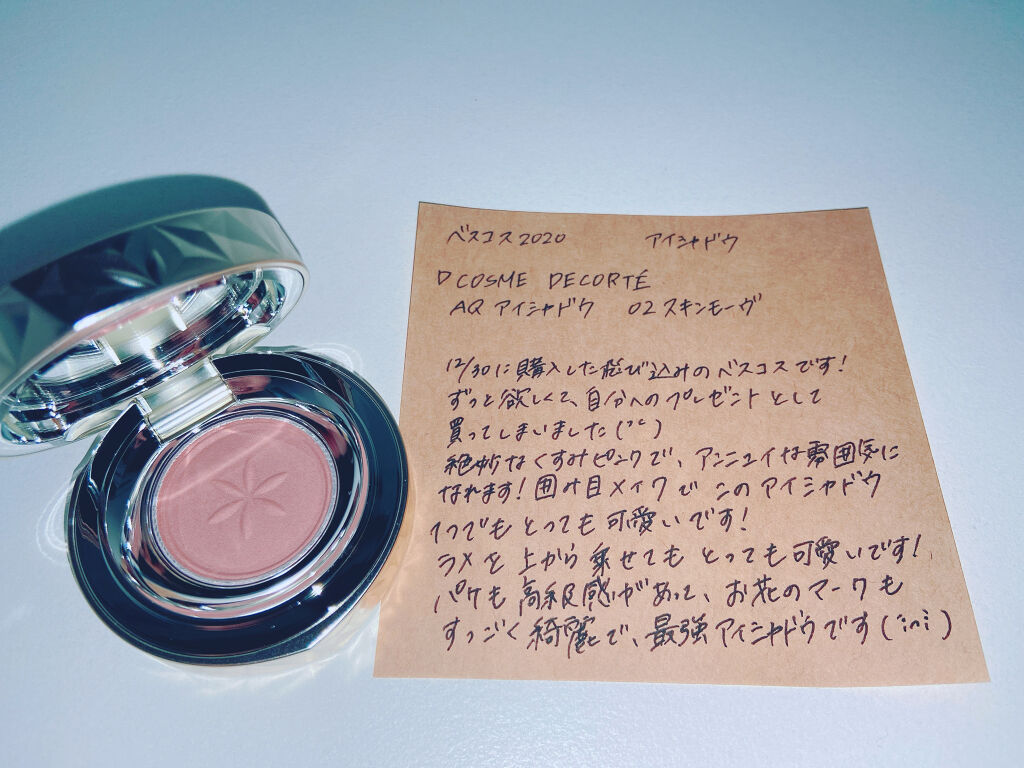 ベスコス2020 アイシャドウ
▷COSME DECORTÉ
AQ アイシャドウ 02 スキンモーヴ
12/30に購入した飛び込みのベスコスです!
ずっと欲しくて、自分へのプレゼントとして
買ってしまいました
絶妙なくすみピンクで、アンニュイな雰囲気に
なれます!囲み目メイクでこのアイシャドウ
1つでもとっても可愛いです!
ラメを上から乗せてもとっても可愛いです!
パケも高級感があって、お花のマークも
すっごく綺麗で、最強アイシャドウです